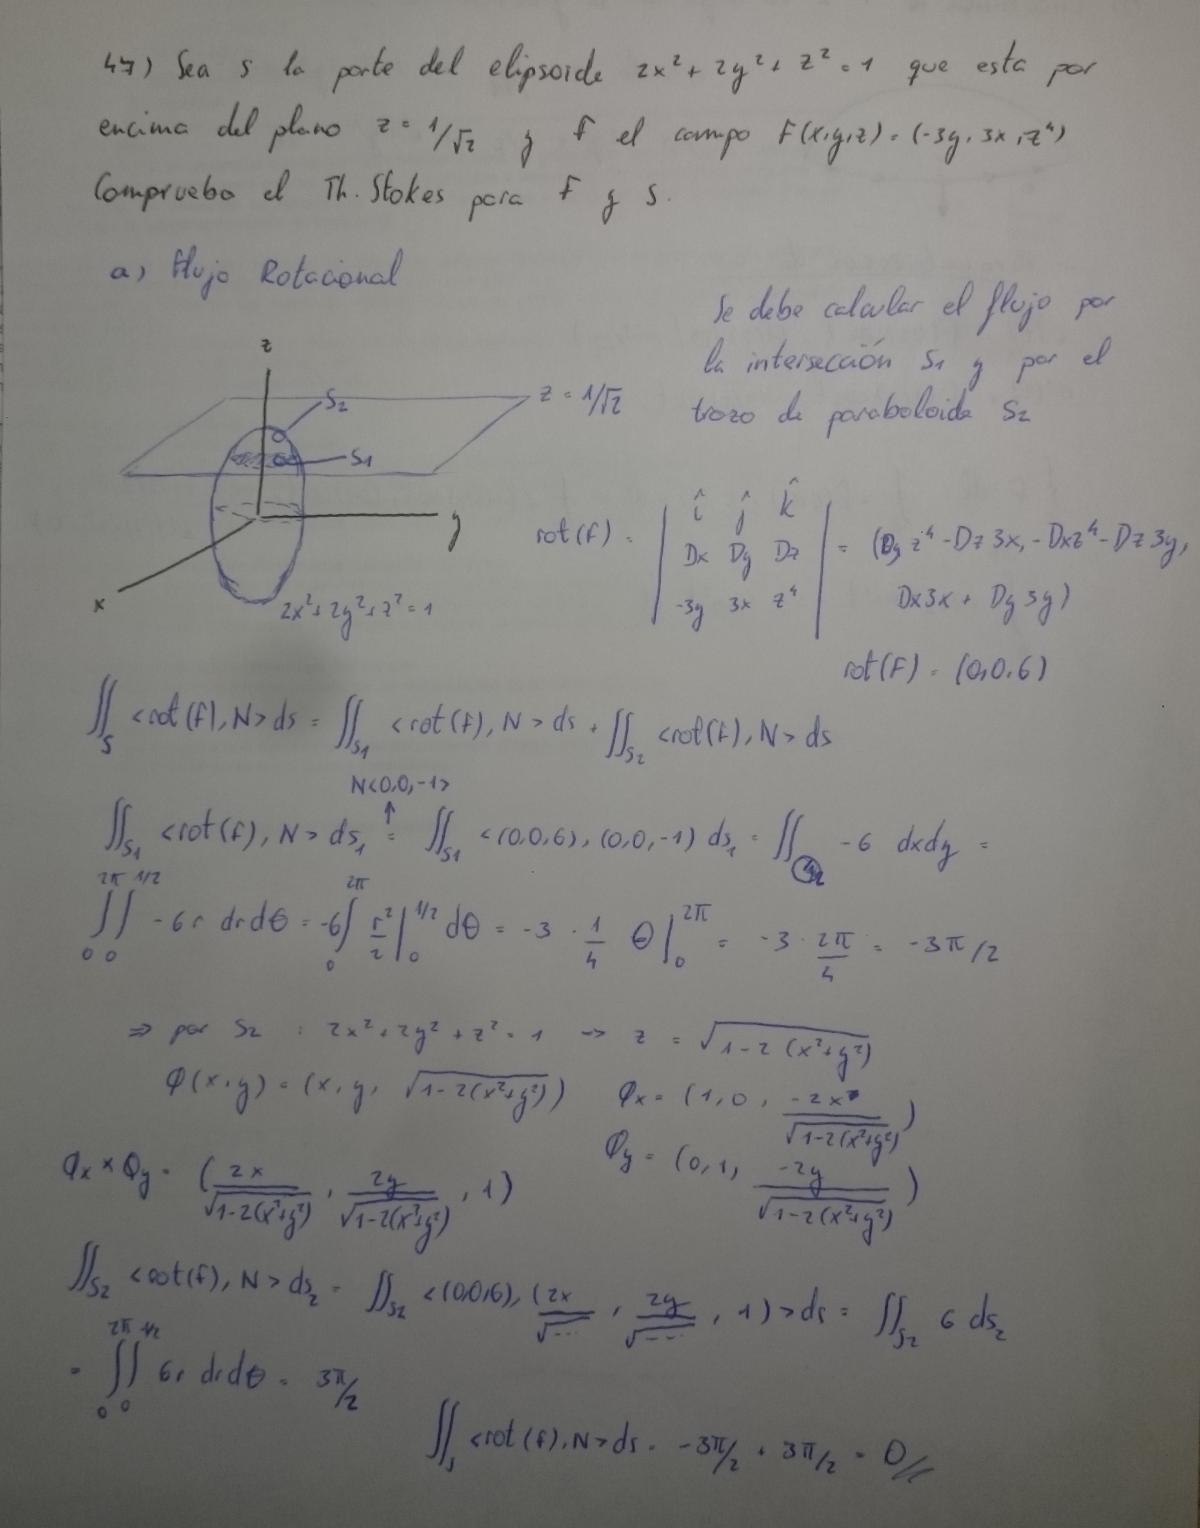 47) Sea s la parte del elipsoide 2x² + 2y² + z² = 1 que esta por
encima del plano z = 1/√2 y F el campo F(x,y,z) = (-3y, 3x, z⁴)
Comprueba el Th. Stokes para F y S.
a) Flujo Rotacional
Se debe calcular el flujo por
la intersección S1 y por el
trozo de paraboloide S2
z
z = 1/√2
S2
S1
y
x
2x² + 2y² + z² = 1
rot(F) = | î ĵ k̂ |
| Dx Dy Dz | = (Dy z⁴ - Dz 3x, - Dx z⁴ - Dz 3y,
| -3y 3x z⁴ | Dx3x + Dy 3y)
rot(F) = (0,0,6)
∬_S <rot(F), N> ds = ∬_S1 <rot(F), N> ds + ∬_S2 <rot(F), N> ds
N<0,0,-1>
↑
∬_S1 <rot(F), N> ds₁ = ∬_S1 <(0,0,6), (0,0,-1) ds₁ = ∬ -6 dxdy =
∫_0^2π ∫_0^1/2 -6 r dr dθ = -6 ∫_0^2π r²/2 |_0^1/2 dθ = -3 · 1/4 θ |_0^2π = -3 · 2π/4 = -3π/2
⇒ por S2 : 2x² + 2y² + z² = 1 → z = √(1-2(x²+y²))
φ(x,y) = (x, y, √(1-2(x²+y²))) φx = (1, 0, -2x/√(1-2(x²+y²)))
φy = (0, 1, -2y/√(1-2(x²+y²)))
φx × φy = (2x/√(1-2(x²+y²)), 2y/√(1-2(x²+y²)), 1)
∬_S2 <rot(F), N> ds₂ = ∬_S2 <(0,0,6), (2x/√..., 2y/√..., 1)> ds = ∬_S2 6 ds₂
= ∫_0^2π ∫_0^1/2 6r dr dθ = 3π/2
∬_S <rot(F), N> ds = -3π/2 + 3π/2 = 0//